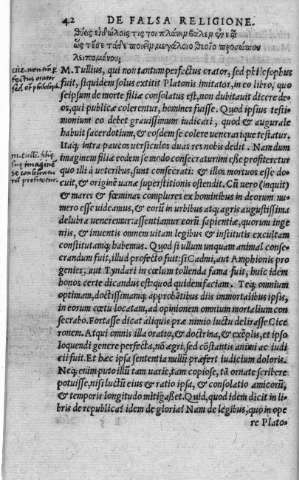 42 DE FALSA RELIGIONE.
M. Tullius, qui non tantum perfectus orator, sed philosophus
fuit, siquidem solus extitit Platonis imitator, in eo libro, quo
seipsum de morte filiæ consolatus est, non dubitauit dicere de-
os, qui publicæ colerentur, homines fuisse. Quod ipsius testi-
monium eo debet grauissimum iudicari, quod & augurale
habuit sacerdotium, & eosdem se colere uenerariq́ue testatur.
Itaq; intra paucos uersiculos duas res nobis dedit. Nam dum
imaginem filiæ eodem se modo consecraturum esse profiteretur
quo illi à ueteribus sunt consecrati: & illos mortuos esse do-
cuit, & originē uanæ superstitionis ostendit. Cū uero (inquit)
& mares & fœminas complures ex hominibus in deorum nu-
mero esse uideamus, & eorū in urbibus atq; agris augustissima
delubra ueneremur: assentiamur eorū sapientiæ, quorum inge-
nijs, & inuentis omnem uitam legibus & institutis excultam
constitutamq; habemus. Quod si ullum unquam animal conse-
crandum fuit, illud profecto fuit: si Cadmi, aut Amphionis pro
genies, aut Tyndari in cœlum tollenda fama fuit, huic idem
honos certe dicandus est: quod quidem faciam. Teq; omnium
optimam, doctissimamq; approbātibus diis immortalibus ipsis,
in eorum cœtu locatam, ad opinionem omnium mortalium con-
secrabo. Fortasse dicat aliquis præ nimio luctu delirasse Cice-
ronem. Atqui omnis illa oratio, & doctrina, & exēplis, et ipso
loquendi genere perfecta, nō ægri, sed cōstantis animi ac iudi-
cii fuit. Et hæc ipsa sententia nullū præfert iudicium doloris.
Neq; enim puto illū tam uarie, tam copiose, tā ornate scribere
potuisse, nisi luctū eius & ratio ipsa, & consolatio amicorū,
& temporis longitudo mitigasset. Quid, quod idem dicit in li-
bris de republica? idem de gloria? Nam de legibus, quo in ope
re Plato-